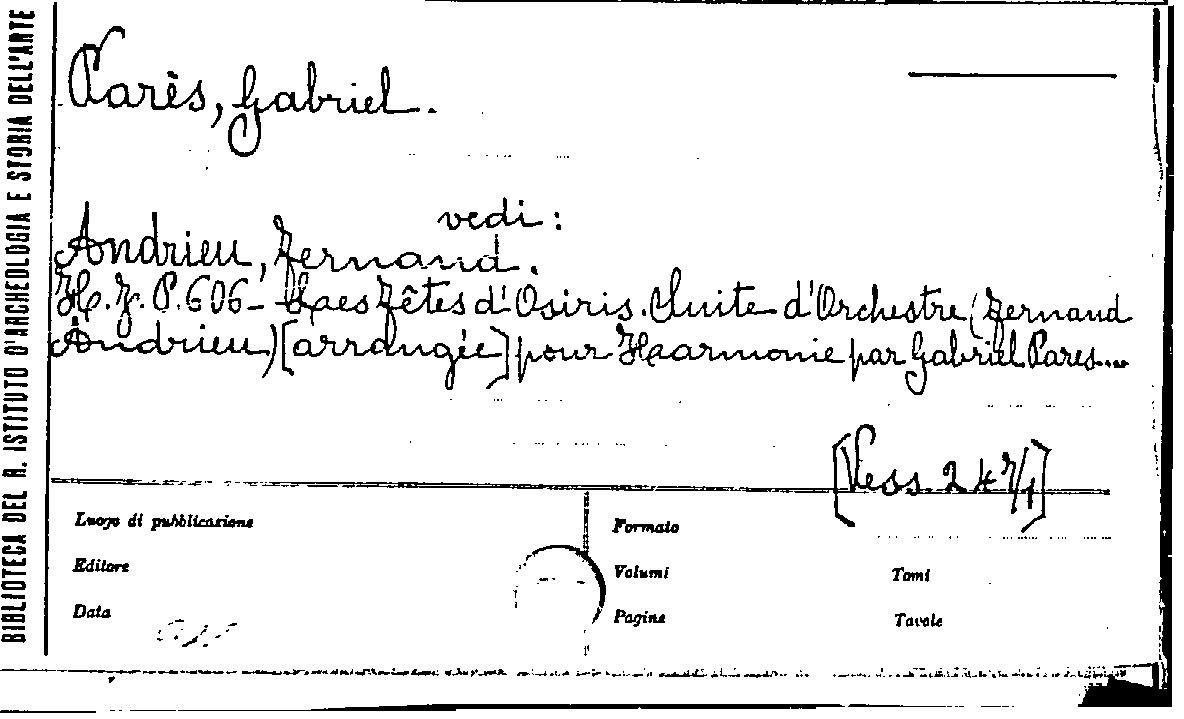 BIBLIOTECA DEL R. ISTITUTO D'ARCHEOLOGIA E STORIA DELL'ARTE
Parès, Gabriel.
vedi:
Andrieu, Fernand.
H.F.P.606- Les Fêtes d'Osiris. Suite d'Orchestre (Fernand
Andrieu) [arrangée] pour Harmonie par Gabriel Pares....
[Vess. 247/1]
Luogo di pubblicazione
Formato
Editore
Volumi
Tomi
Data
Pagine
Tavole